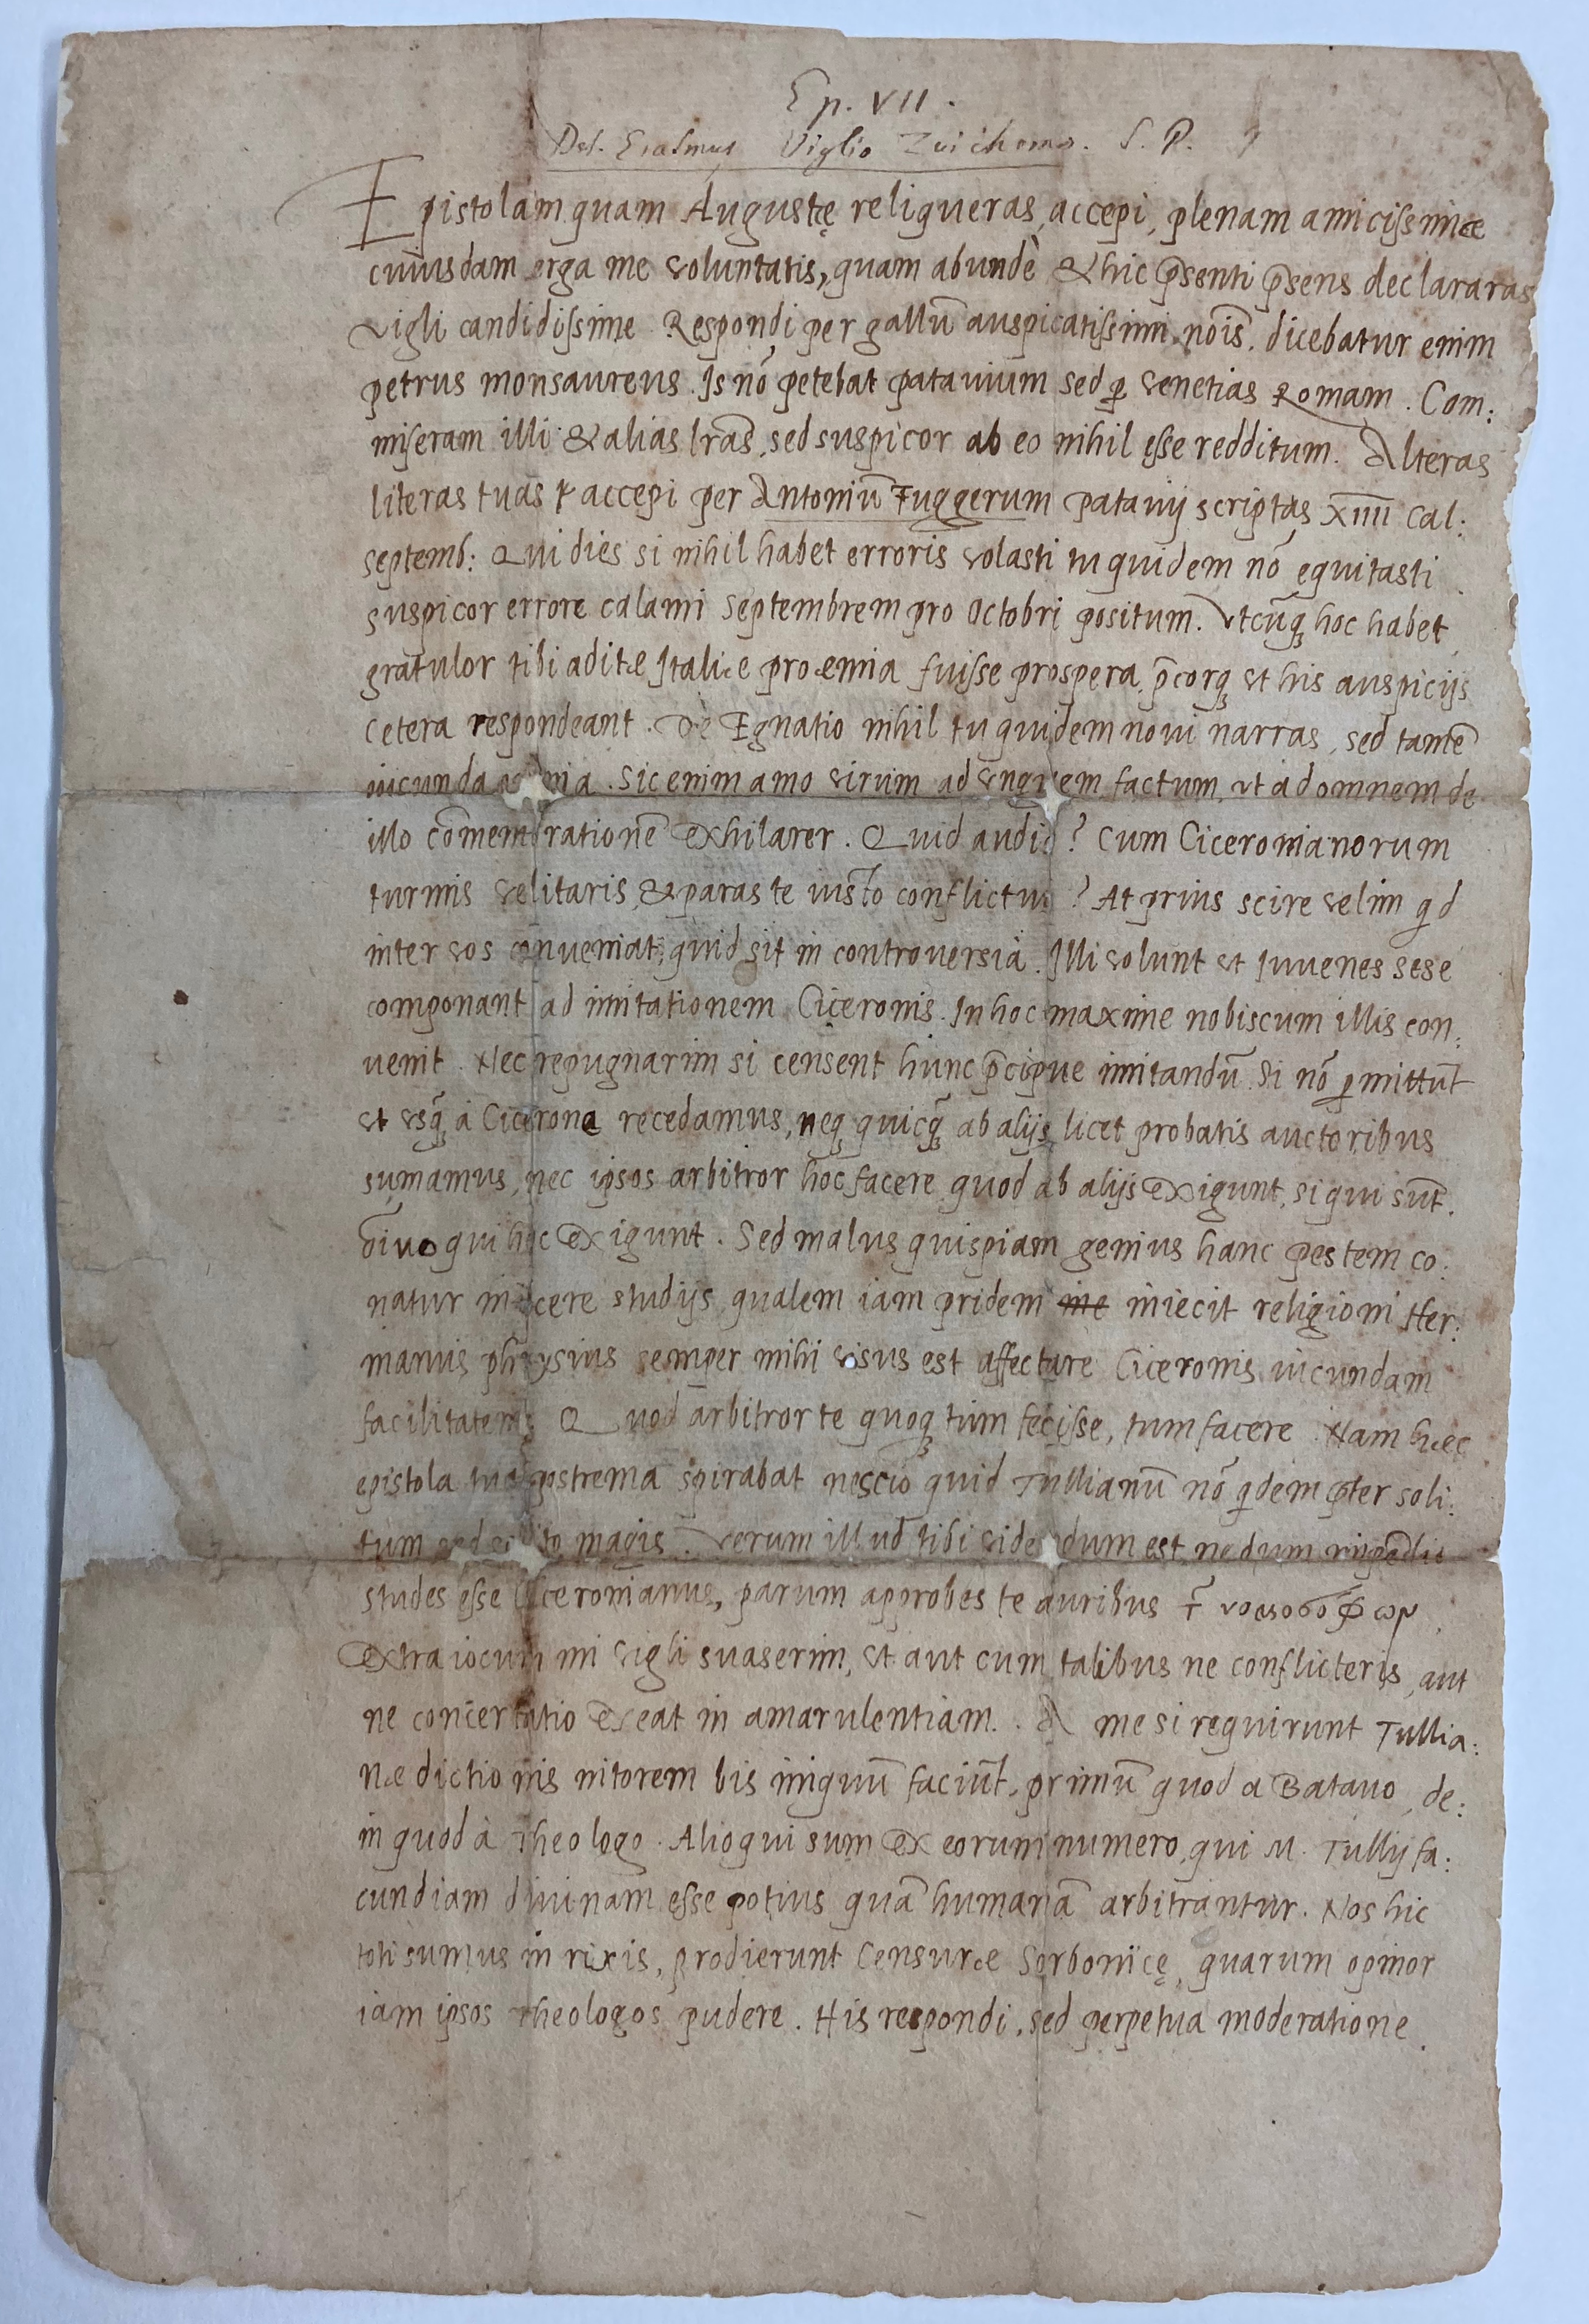 Ep. VII.
Des. Erasmus Viglio Zuichemo. S. P.
Epistolam quam Augustę reliqueras, accepi, plenam amicissimæ
cuiusdam erga me voluntatis, quam abundè & hic p̄senti p̄sens declararas
vigli candidissime. Respondi per gallū auspicatissimi nōis. dicebatur enim
petrus monsaureus. Is nō petebat patauium sed ꝑ venetias Romam. Com:
miseram illi & alias lrās, sed suspicor ab eo nihil esse redditum. Alteras
literas tuas accepi per Antoniū Fuggerum patauij scriptas XIIII cal:
septemb: Qui dies si nihil habet erroris volasti tu quidem nō equitasti
suspicor errore calami Septembrem pro Octobri positum. Vtcūq̨ hoc habet
gratulor tibi aditæ Italiæ proœmia fuisse prospera, p̄corq̨ vt his auspicijs
cetera respondeant. De Egnatio nihil tu quidem noui narras, sed tamē
iucunda omnia. Sic enim amo virum ad vnguem factum, vt ad omnem de
illo cōmemorationē exhilarer. Quid audio? Cum Ciceronianorum
turmis velitaris, & paras te iusto conflictui? At prius scire velim qd
inter vos conueniat, quid sit in controuersia. Illi volunt vt Iuuenes sese
componant ad imitationem Ciceronis. In hoc maxime nobiscum illis con:
uenit. Nec repugnarim si censent hunc p̄cipue imitandū. Si nō ꝑmittūt
vt vsq̄ à Cicerone recedamus, neq̨ quicq̄ ab alijs licet probatis auctoribus
sumamus, nec ipsos arbitror hoc facere quod ab alijs exigunt, si qui sūt.
qui hoc exigunt. Sed malus quispiam genius hanc pestem co:
natur inijcere studijs, qualem iam pridem ~~ine~~ iniecit religioni Her:
manus phrysius semper mihi visus est affectare Ciceronis iucundam
facilitatem, Quod arbitror te quoq̨ tum fecisse, tum facere. Nam hæc
epistola tua postrema spirabat nescio quid Tullianū nō qdem p̄ter soli:
tum sed solito magis. Verum illud tibi videndum est ne dum impēdio
studes esse Ciceronianus, parum approbes te auribus
Extra iocum mi vigli suaserim, vt aut cum talibus ne conflicteris, aut
ne concertatio exeat in amarulentiam. A me si requirunt Tullia:
næ dictionis nitorem bis iniquū faciūt, primū quod a Batauo, de:
in quod à Theologo. Alioqui sum ex eorum numero, qui M. Tullij fa:
cundiam diuinam esse potius quā humanā arbitrantur. Nos hic
toti sumus in rixis, prodierunt Censuræ Sorbonicę, quarum opinor
iam ipsos theologos pudere. His respondi, sed perpetua moderatione